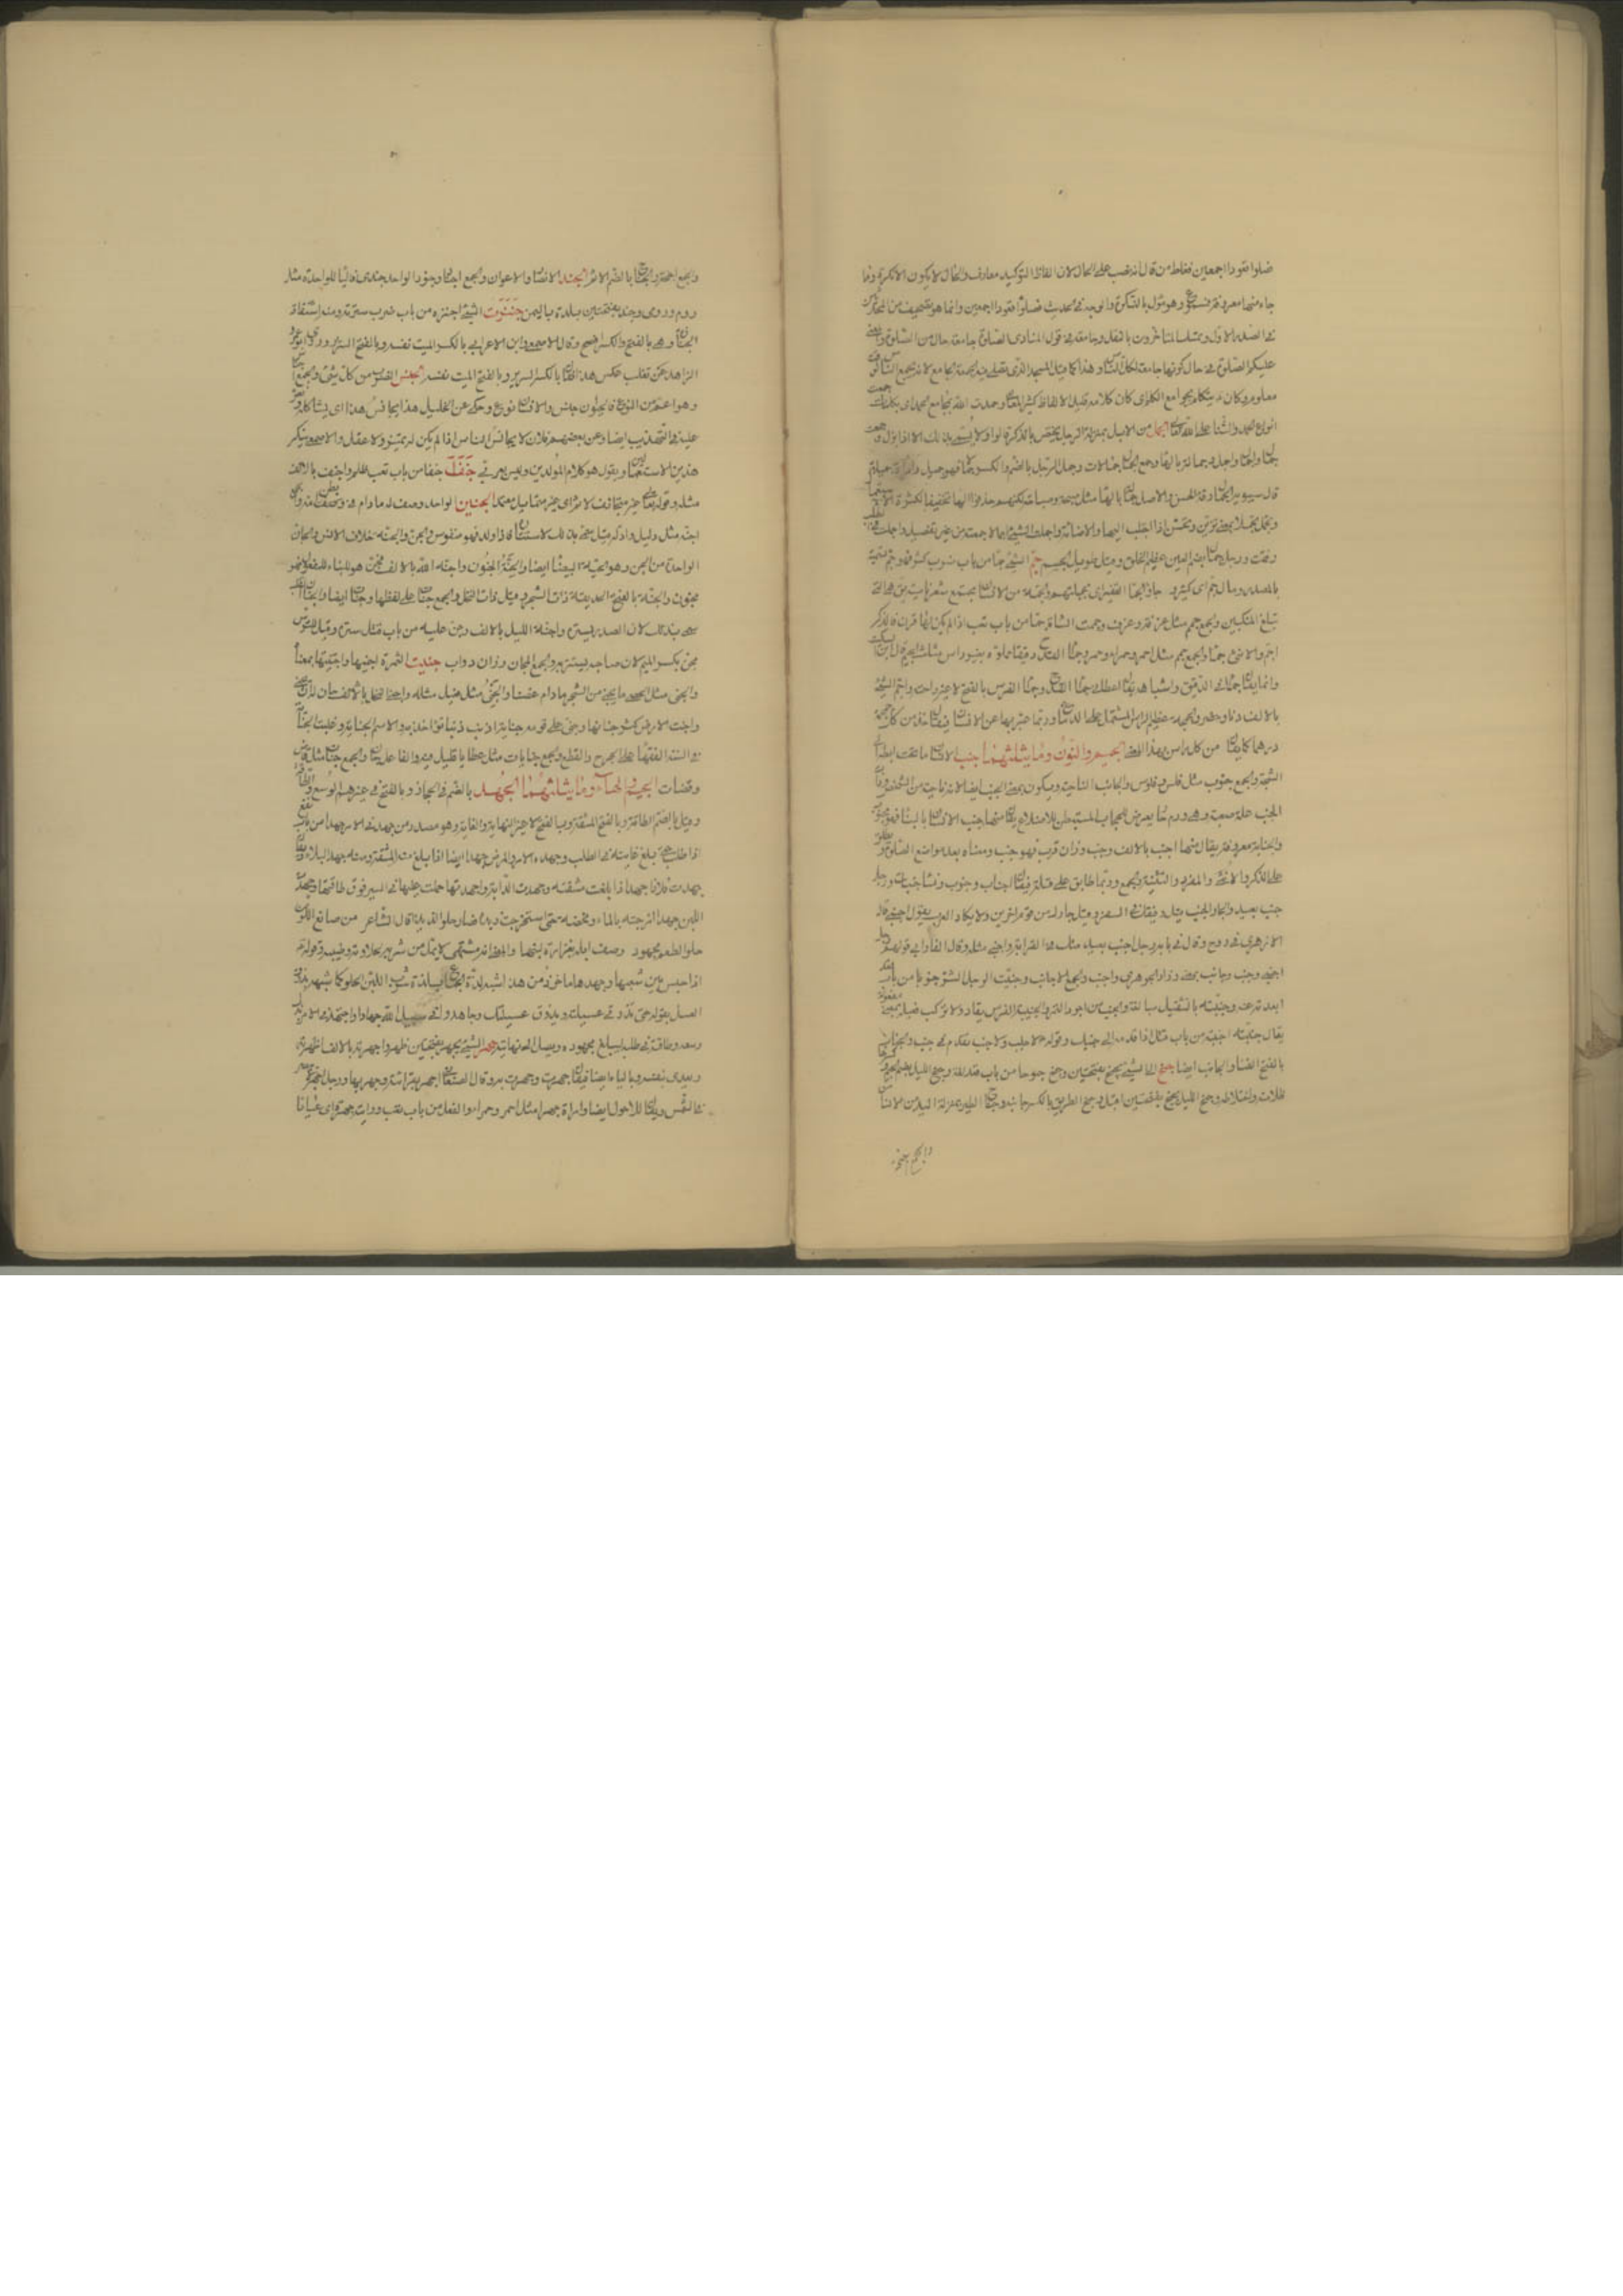 فصلوا قعودا اجمعين فغلط من قال انه نصب على الحال لان الفاظ التوكيد معارف والحال لا يكون الا نكرة وما
جاء منها معرفة فمسموع وهو مؤول بالنكرة والوجه في الحديث فصلوا قعودا اجمعون وانما هو تصحيف من المحدثين
في الصدر الاول وتمسك المتاخرون بالنقل وجامعة في قول المنادى الصلوة جامعة حال من الصلوة والمعنى
عليكم الصلوة في حال كونها جامعة لكل الناس وهذا كما قيل للمسجد الذى تصلى فيه الجمعة الجامع لانه يجمع الناس
معلوم وكان يتكلم بجوامع الكلم اى كان كلامه قليل الالفاظ كثير المعانى وحمدت الله بمجامع الحمد اى بكلمات جمعت
انواع الحمد والثناء على الله تعالى الجمل من الابل بمنزلة الرجل يختص بالذكر قالوا ولا يسمى بذلك الا اذا بزل وجمعه
جمال واجمال واجمل وجمالة بالهاء وجمع الجمال جمالات وجمل الرجل بالضم والكسر جمالا فهو جميل وامراة جميلة
قال سيبويه الجمال رقة الحسن والاصل جمالة بالهاء مثل صبح صباحة لكنهم حذفوا الهاء تخفيفا لكثرة الاستعمال
وتجمل تجملا بمعنى تزين وتحسن اذا اجتلب البهاء والاضاءة واجملت الشئ اجمالا جمعته من غير تفصيل واجملت في الطلب
رفقت ورجل جمالى بضم الجيم عظيم الخلق وقيل طويل الجسم جم الشئ جما من باب ضرب كثر فهو جم تسمية
بالمصدر ومال جم اى كثير و جاؤا الجماء الغفير اى بجملتهم والجمة من الانسان مجتمع شعر ناصيته يقال هى التى
تبلغ المنكبين والجمع جمم مثل غرفة وغرف وجمت الشاة جمما من باب تعب اذا لم يكن لها قرن فالذكر
اجم والانثى جماء والجمع جم مثل احمر وحمراء وحمر وجمام القدح دقيقا ملؤه بغير راس مثلث الجيم قال ابن السكيت
وانما يقال جمام في الدقيق واشباهه يقال اعطانى جمام القدح وجمام الفرس بالفتح لا غير راحته واجم الشئ
بالالف دنا وحضر والجمجمة عظم الراس المشتمل على الدماغ وربما عبر بها عن الانسان فيقال خذ من كل جمجمة
درهما كما يقال من كل راس بهذا المعنى الجيم والنون وما يثلثهما جنب الانسان ما تحت ابطه الى
الشجة والجمع جنوب مثل فلس وفلوس والجانب الناحية ويكون بمعنى الجنب ايضا لانه ناحية من الشخص وذات
الجنب علة صعبة وهى ورم حار يعرض للحجاب المستبطن للاضلاع يقال منها جنب الانسان بالبناء فهو مجنوب
والجنابة معروفة يقال منها اجنب بالالف وجنب وزان قرب فهو جنب ومعناه بعد مواضع الصلوة ويطلق
على الذكر والانثى والمفرد والتثنية والجمع وربما طابق على قلة فيقال اجناب وجنوب ونساء جنبات ورجل
جنب بعيد والجار الجنب قيل رفيقك في السفر وقيل جارك من قوم اخرين ولا يكاد العرب يقول اجنبى قاله
الازهرى في روح وقال في بابه رجل اجنب بعيد منك في القرابة واجنبى مثله وقال الفارابى قولهم رجل
اجنبى وجنب وجانب بمعنى وزاد الجوهرى واجنب والجمع الاجانب وجنبت الرجل الشر جنوبا من باب قعد
ابعدته عنه وجنبته بالتثقيل مبالغة والجنيب من اجود التمر والجنيبة الفرس يقاد ولا تركب فعيلة بمعنى مفعولة
يقال جنبته اجنبه من باب قتل اذا قدته الى جنبك وقوله لا جلب ولا جنب تقدم في جلب والجناب
بالفتح الفناء والجانب ايضا جنح الى الشئ يجنح بفتحتين وجنح جنوحا من باب قعد لغة وجنح الليل بضم الجيم وكسرها
ظلامه واختلاطه وجنح الليل يجنح بفتحتين اقبل وجنح الطريق بالكسر جانبه وجناح الطير بمنزلة اليد من الانسان
والجمع اجنحة
والجمع اجنحة والجناح بالضم الاثم الجند الانصار والاعوان والجمع اجناد وجنود الواحد جندى فالياء للواحدة مثل
روم ورومى وجند بفتحتين بلدة باليمن جنزت الشئ اجنزه من باب ضرب سترته ومنه اشتقاق
الجنازة وهى بالفتح والكسر افصح وقال الاصمعى وابن الاعرابى بالكسر الميت نفسه وبالفتح السرير وروى ابو عمر
الزاهد عن ثعلب عكس هذا فقال بالكسر السرير وبالفتح الميت نفسه الجنس الضرب من كل شئ والجمع اجناس
وهو اعم من النوع فالحيوان جنس والانسان نوع وحكى عن الخليل هذا يجانس هذا اى يشاكله ونص
عليه في التهذيب ايضا وعن بعضهم فلان لا يجانس الناس اذا لم يكن له تمييز ولا عقل والاصمعى ينكر
هذين الاستعمالين ويقول هو كلام المولدين وليس بعربى جنف جنفا من باب تعب ظلم واجنف بالالف
مثله وقوله تعالى غير متجانف لاثم اى غير متمايل متعمد الجنين الواحد وصف له ما دام في بطن امه والجمع
اجنة مثل دليل وادلة قيل سمى بذلك لاستتاره فاذا ولد فهو منفوس والجن والجنة بخلاف الانس والجان
الواحد من الجن وهو الحية البيضاء ايضا والجنة الجنون واجنه الله بالالف فجن هو للبناء للمفعول فهو
مجنون والجنة بالفتح الحديقة ذات الشجر وقيل ذات النخل والجمع جنات على لفظها وجنان ايضا والجنان القلب
سمى بذلك لان الصدر يستره واجنه الليل بالالف وجن عليه من باب قتل ستره وقيل للترس
مجن بكسر الميم لان صاحبه يستتر به والجمع المجان وزان دواب جنيت الثمرة اجنيها واجتنيتها بمعنى
والجنى مثل الحصى ما يجنى من الشجر ما دام غضا والجنى مثل فعيل مثله واجنى النخل بالالف حان له ان يجنى
واجنت الارض كثر جناها وجنى على قومه جناية اذنب ذنبا يؤاخذ به والاسم الجناية وغلبت الجناية
في السنة الفقهاء على الجرح والقطع والجمع جنايات مثل عطايا قليل فيه والفاعل جان والجمع جناة مثل قاض
وقضاة الجيم والهاء وما يثلثهما الجهد بالضم في الحجاز وبالفتح في غيرهم الوسع والطاقة
وقيل بالضم الطاقة وبالفتح المشقة وبالفتح لا غير النهاية والغاية وهو مصدر من جهد في الامر جهدا من باب نفع
اذا طلب حتى بلغ غايته في الطلب وجهده الامر والمرض جهدا ايضا اذا بلغ منه المشقة ومنه جهد البلاء ويقال
جهدت فلانا جهدا اذا بلغت مشقته وجهدت الدابة واجهدتها حملت عليها في السير فوق طاقتها وجهدت
اللبن جهدا مزجته بالماء ومخضته حتى استخرجت زبده فصار حلوا لذيذا قال الشاعر من صانع اللون
حلو الطعم مجهود وصف ابله بغزارة لبنها والمعنى انه مشتهى لا يمل من شربه لحلاوته وطيبه وقوله
اذا جلس بين شعبها وجهدها ماخوذ من هذا شبه لذة الجماع بلذة شرب اللبن الحلو كما شبهه بذوق
العسل بقوله حتى تذوقى عسيلته ويذوق عسيلتك وجاهد في سبيل الله جهادا واجتهد في الامر بذل
وسعه وطاقته في طلبه ليبلغ مجهوده ويصل الى نهايته جهر الشئ يجهر بفتحتين ظهر واجهرته بالالف اظهرته
ويعدى بنفسه وبالباء ايضا فيقال جهرته وجهرت به وقال الصغانى اجهر بقراءته وجهر بها ورجل اجهر لا يبصر
في الشمس ويقال للاحول ايضا وامراة جهراء مثل احمر وحمراء والفعل من باب تعب ورايته جهرة اى عيانا